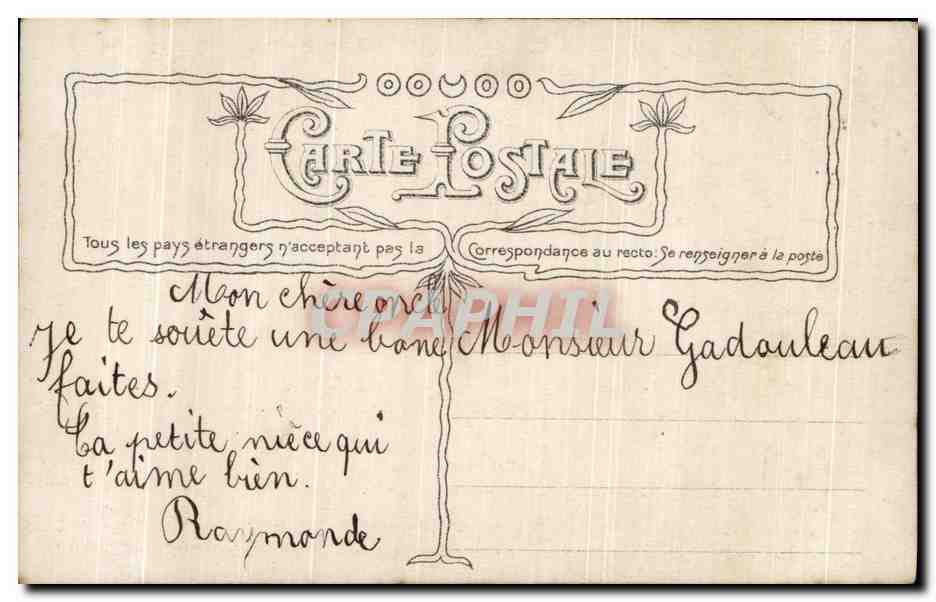 CARTE POSTALE
Tous les pays étrangers n'acceptant pas la Correspondance au recto: Se renseigner à la poste
Mon chère oncle
Je te souête une bone
faites.
Ta petite nièce qui
t'aime bien.
Raymonde
Monsieur Gadouleau
CPAPHIL